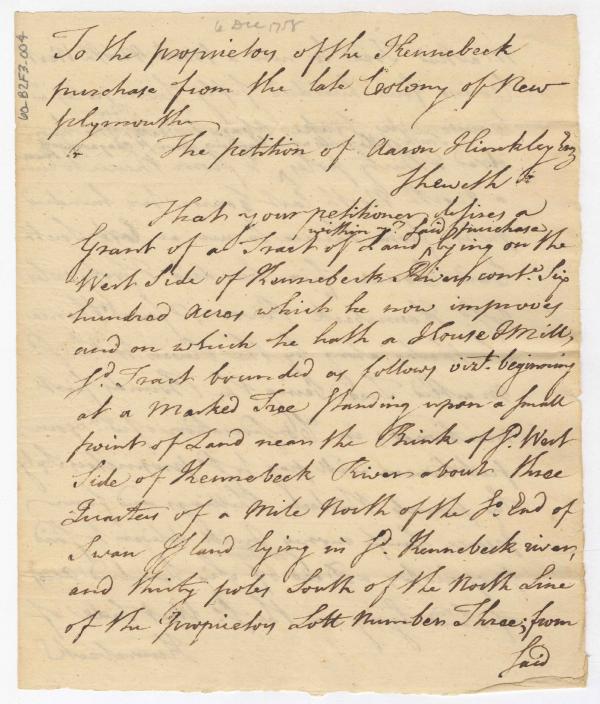 6 Dec 1758
60-B2F3.004
To the proprietors of the Kennebeck
purchase from the late Colony of New
plymouth
The petition of Aaron Hinkley Esq
Sheweth
That your petitioner desires a
within ye. Said purchase
Grant of a Tract of Land ^ lying on the
West Side of Kennebeck River cont.g Six
hundred Acres which he now improves
and on which he hath a House & Mill,
Sd. Tract bounded as follows vizt. beginning
at a Marked Tree Standing upon a Small
point of Land near the Brink of Sd. West
Side of Kennebeck River about three
Quarters of a Mile North of the So. End of
Swan Island lying in Sd. Kennebeck river,
and thirty poles South of the North Line
of the Proprietors Lott Number Three; from
Said